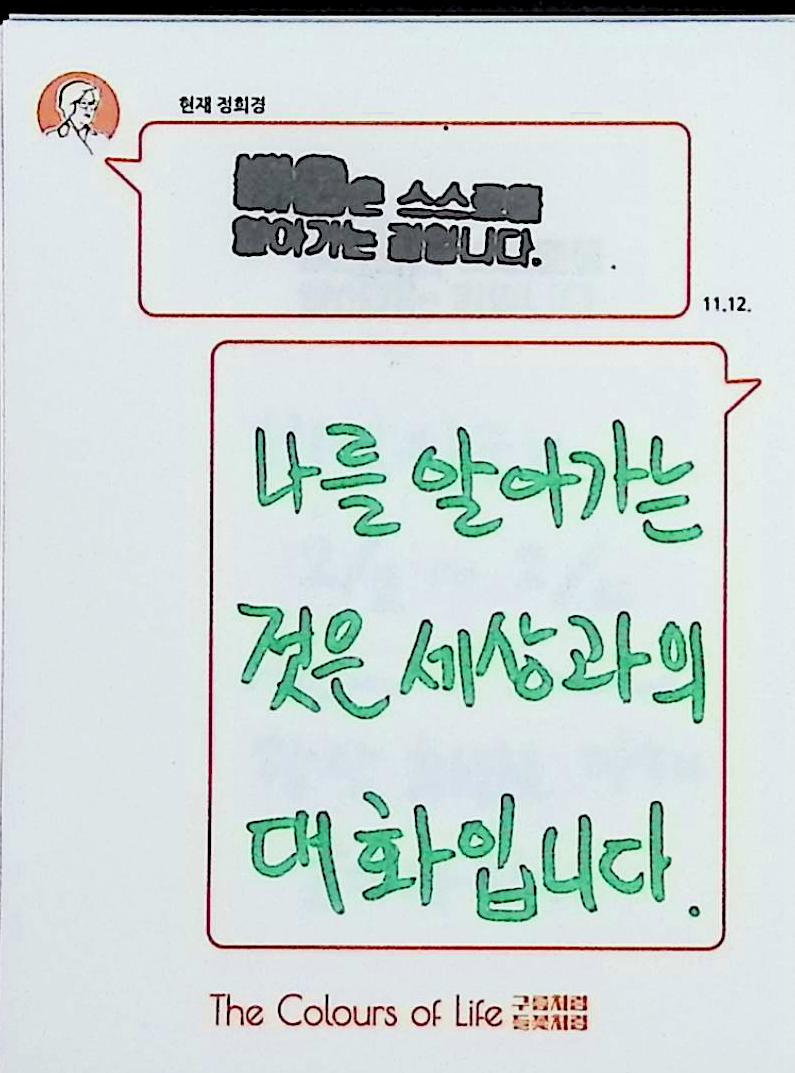 현재 정희경
배움은 스스로를
알아가는 길입니다.
11.12.
나를 알아가는
것은 세상과의
대화입니다.
The Colours of Life 구름처럼
들꽃처럼